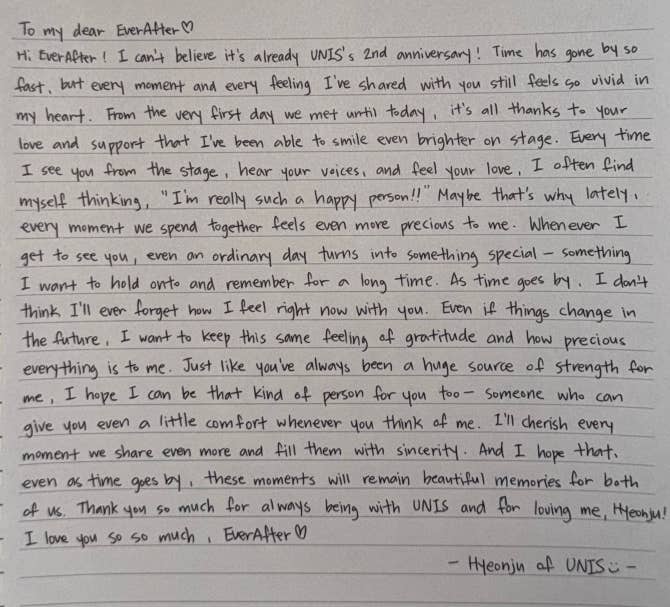 To my dear EverAfter♡
Hi EverAfter! I can't believe it's already UNIS's 2nd anniversary! Time has gone by so
fast, but every moment and every feeling I've shared with you still feels so vivid in
my heart. From the very first day we met until today, it's all thanks to your
love and support that I've been able to smile even brighter on stage. Every time
I see you from the stage, hear your voices, and feel your love, I often find
myself thinking, "I'm really such a happy person!!" Maybe that's why lately,
every moment we spend together feels even more precious to me. Whenever I
get to see you, even an ordinary day turns into something special - something
I want to hold onto and remember for a long time. As time goes by, I don't
think I'll ever forget how I feel right now with you. Even if things change in
the future, I want to keep this same feeling of gratitude and how precious
everything is to me. Just like you've always been a huge source of strength for
me, I hope I can be that kind of person for you too - someone who can
give you even a little comfort whenever you think of me. I'll cherish every
moment we share even more and fill them with sincerity. And I hope that,
even as time goes by, these moments will remain beautiful memories for both
of us. Thank you so much for always being with UNIS and for loving me, Hyeonju!
I love you so so much, EverAfter♡
- Hyeonju of UNIS:) -